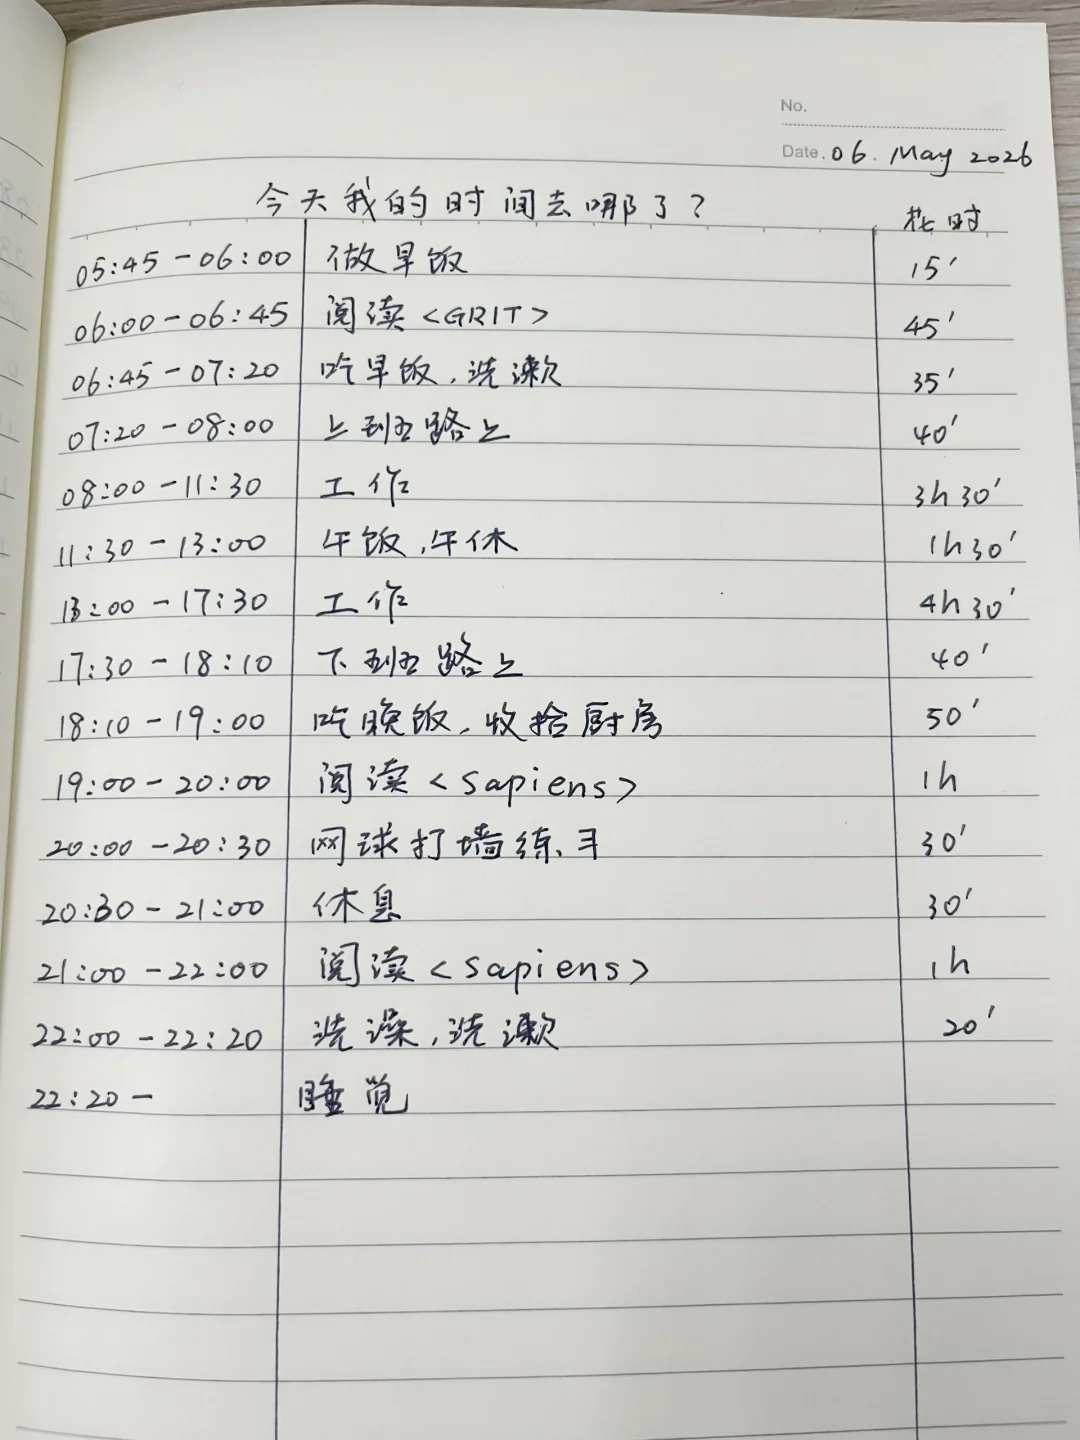 No.
Date. 06. May 2026
今天我的时间去哪了？ 耗时
05:45 - 06:00 做早饭 15'
06:00 - 06:45 阅读 <GRIT> 45'
06:45 - 07:20 吃早饭，洗漱 35'
07:20 - 08:00 上班路上 40'
08:00 - 11:30 工作 3h 30'
11:30 - 13:00 午饭，午休 1h 30'
13:00 - 17:30 工作 4h 30'
17:30 - 18:10 下班路上 40'
18:10 - 19:00 吃晚饭，收拾厨房 50'
19:00 - 20:00 阅读 <Sapiens> 1h
20:00 - 20:30 网球打墙练习 30'
20:30 - 21:00 休息 30'
21:00 - 22:00 阅读 <Sapiens> 1h
22:00 - 22:20 洗澡，洗漱 20'
22:20 - 睡觉